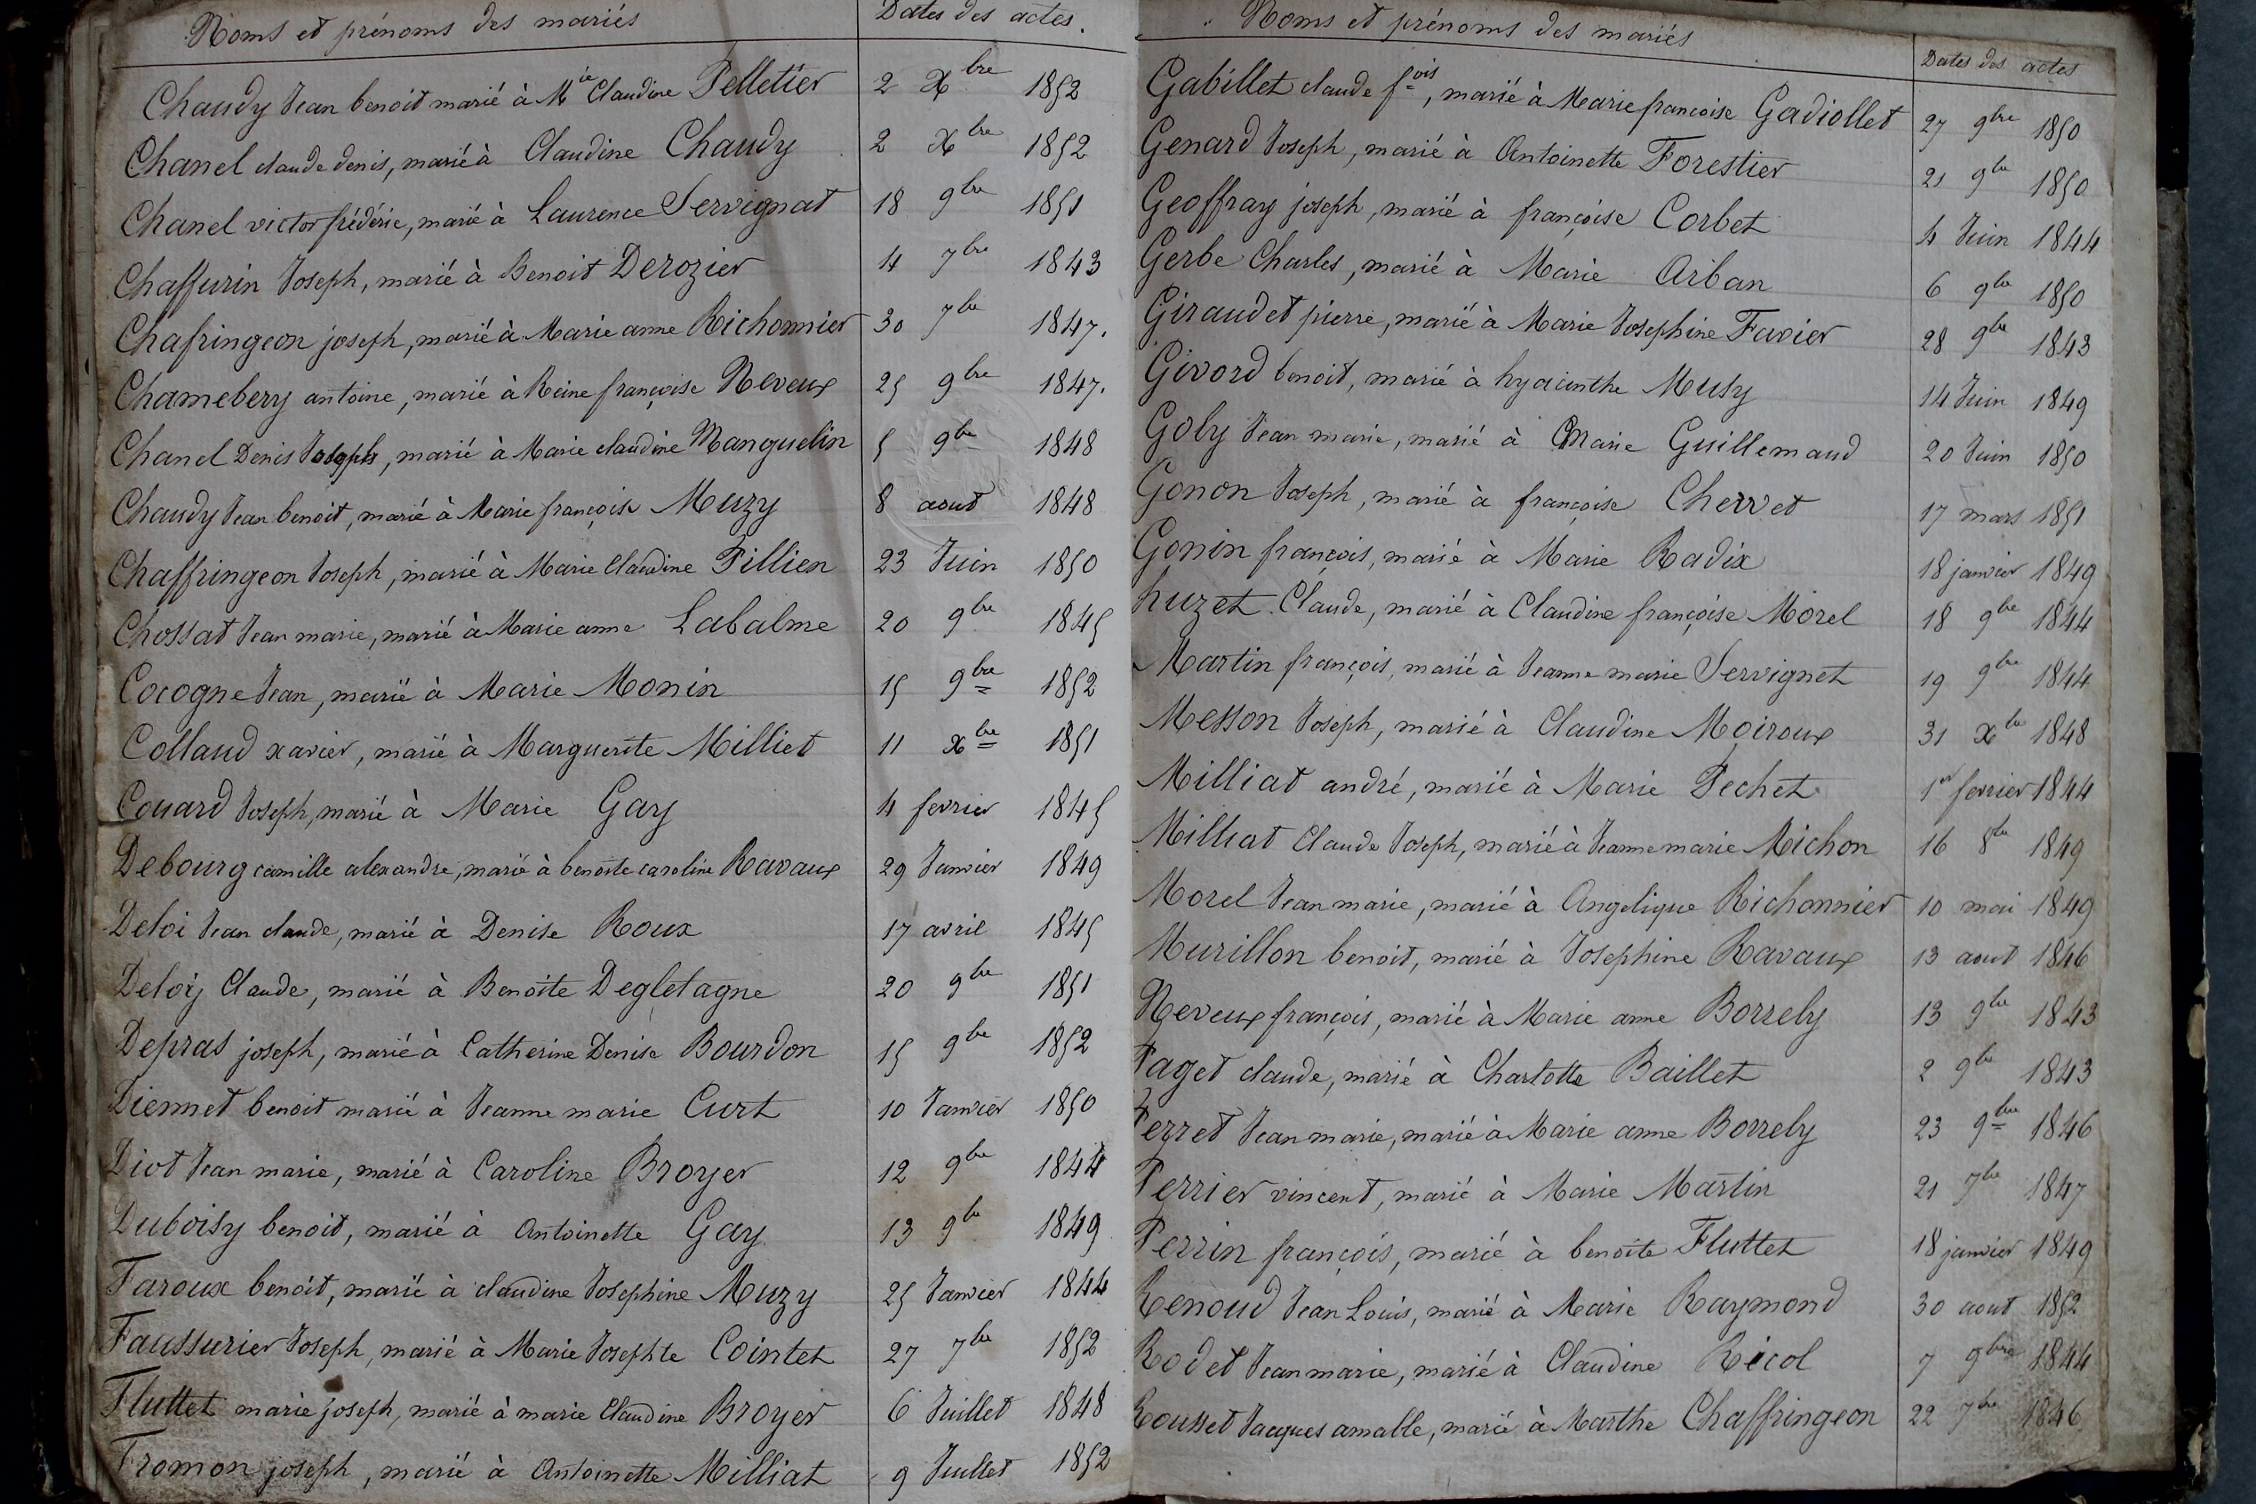 Noms et prénoms des mariés
Dates des actes.
Chaudy Jean benoit marié à Mie Claudine Pelletier 2 Xbre 1852
Chanel claude denis, marié à Claudine Chaudy 2 Xbre 1852
Chanel victor frédéric, marié à Laurence Servignat 18 9bre 1851
Chaffurin Joseph, marié à Benoit Derozier 4 7bre 1843
Chafringeon joseph, marié à Marie anne Richonnier 30 7bre 1847.
Chamebery antoine, marié à Reine françoise Neveux 25 9bre 1847.
Chanel Denis Joseph, marié à Marie claudine Manguelin 5 9bre 1848
Chaudy Jean benoit, marié à Marie françoise Muzy 8 aout 1848
Chaffringeon Joseph, marié à Marie Claudine Pillien 23 Juin 1850
Chossat Jean marie, marié à Marie anne Labalme 20 9bre 1845
Cocogne Jean, marié à Marie Monin 15 9bre 1852
Colland xavier, marié à Marguerite Milliet 11 Xbre 1851
Couard Joseph, marié à Marie Gay 4 fevrier 1845
Debourg camille alexandre, marié à benoite caroline Ravaux 29 Janvier 1849
Deloi Jean claude, marié à Denise Roux 17 avril 1845
Deloij Claude, marié à Benoite Degletagne 20 9bre 1851
Depras joseph, marié à Catherine Denise Bourdon 15 9bre 1852
Diennet benoit marié à Jeanne marie Curt 10 Janvier 1850
Diot Jean marie, marié à Caroline Broyer 12 9bre 1844
Duboisy benoit, marié à Antoinette Gay 13 9bre 1849
Faroux benoit, marié à claudine Josephine Muzy 25 Janvier 1844
Faussurier Joseph, marié à Marie Josephte Cointet 27 7bre 1852
Fluttet marie joseph, marié à marie Claudine Broyer 6 Juillet 1848
Fromon joseph, marié à Antoinette Milliat 9 Juillet 1852
Noms et prénoms des mariés
Dates des actes
Gabillet claude fois, marié à Marie françoise Gadiollet 27 9bre 1850
Genard Joseph, marié à Antoinette Forestier 21 9bre 1850
Geoffray joseph, marié à françoise Corbet 4 Juin 1844
Gerbe Charles, marié à Marie Arban 6 9bre 1850
Giraudet pierre, marié à Marie Josephine Favier 28 9bre 1843
Givord benoit, marié à hyacinthe Musy 14 Juin 1849
Goby Jean marie, marié à Marie Guillemaud 20 Juin 1850
Gonon Joseph, marié à françoise Chervet 17 mars 1851
Gonin françois, marié à Marie Radix 18 janvier 1849
huzet Claude, marié à Claudine françoise Morel 18 9bre 1844
Martin françois, marié à Jeanne marie Servignet 19 9bre 1844
Messon Joseph, marié à Claudine Moiroux 31 Xbre 1848
Milliat andré, marié à Marie Pechet 1er fevrier 1844
Milliat Claude Joseph, marié à Jeanne marie Michon 16 8bre 1849
Morel Jean marie, marié à Angelique Richonnier 10 mai 1849
Murillon benoit, marié à Josephine Ravaux 13 aout 1846
Neveux françois, marié à Marie anne Borrely 13 9bre 1843
Paget claude, marié à Charlotte Baillet 2 9bre 1843
Perret Jean marie, marié à Marie anne Borrely 23 9bre 1846
Perrier vincent, marié à Marie Martin 21 7bre 1847
Perrin françois, marié à benoite Fluttet 18 janvier 1849
Renoud Jean Louis, marié à Marie Raymond 30 aout 1852
Rodet Jean marie, marié à Claudine Ricol 7 9bre 1844
Rousset Jacques amable, marié à Marthe Chaffringeon 22 7bre 1846